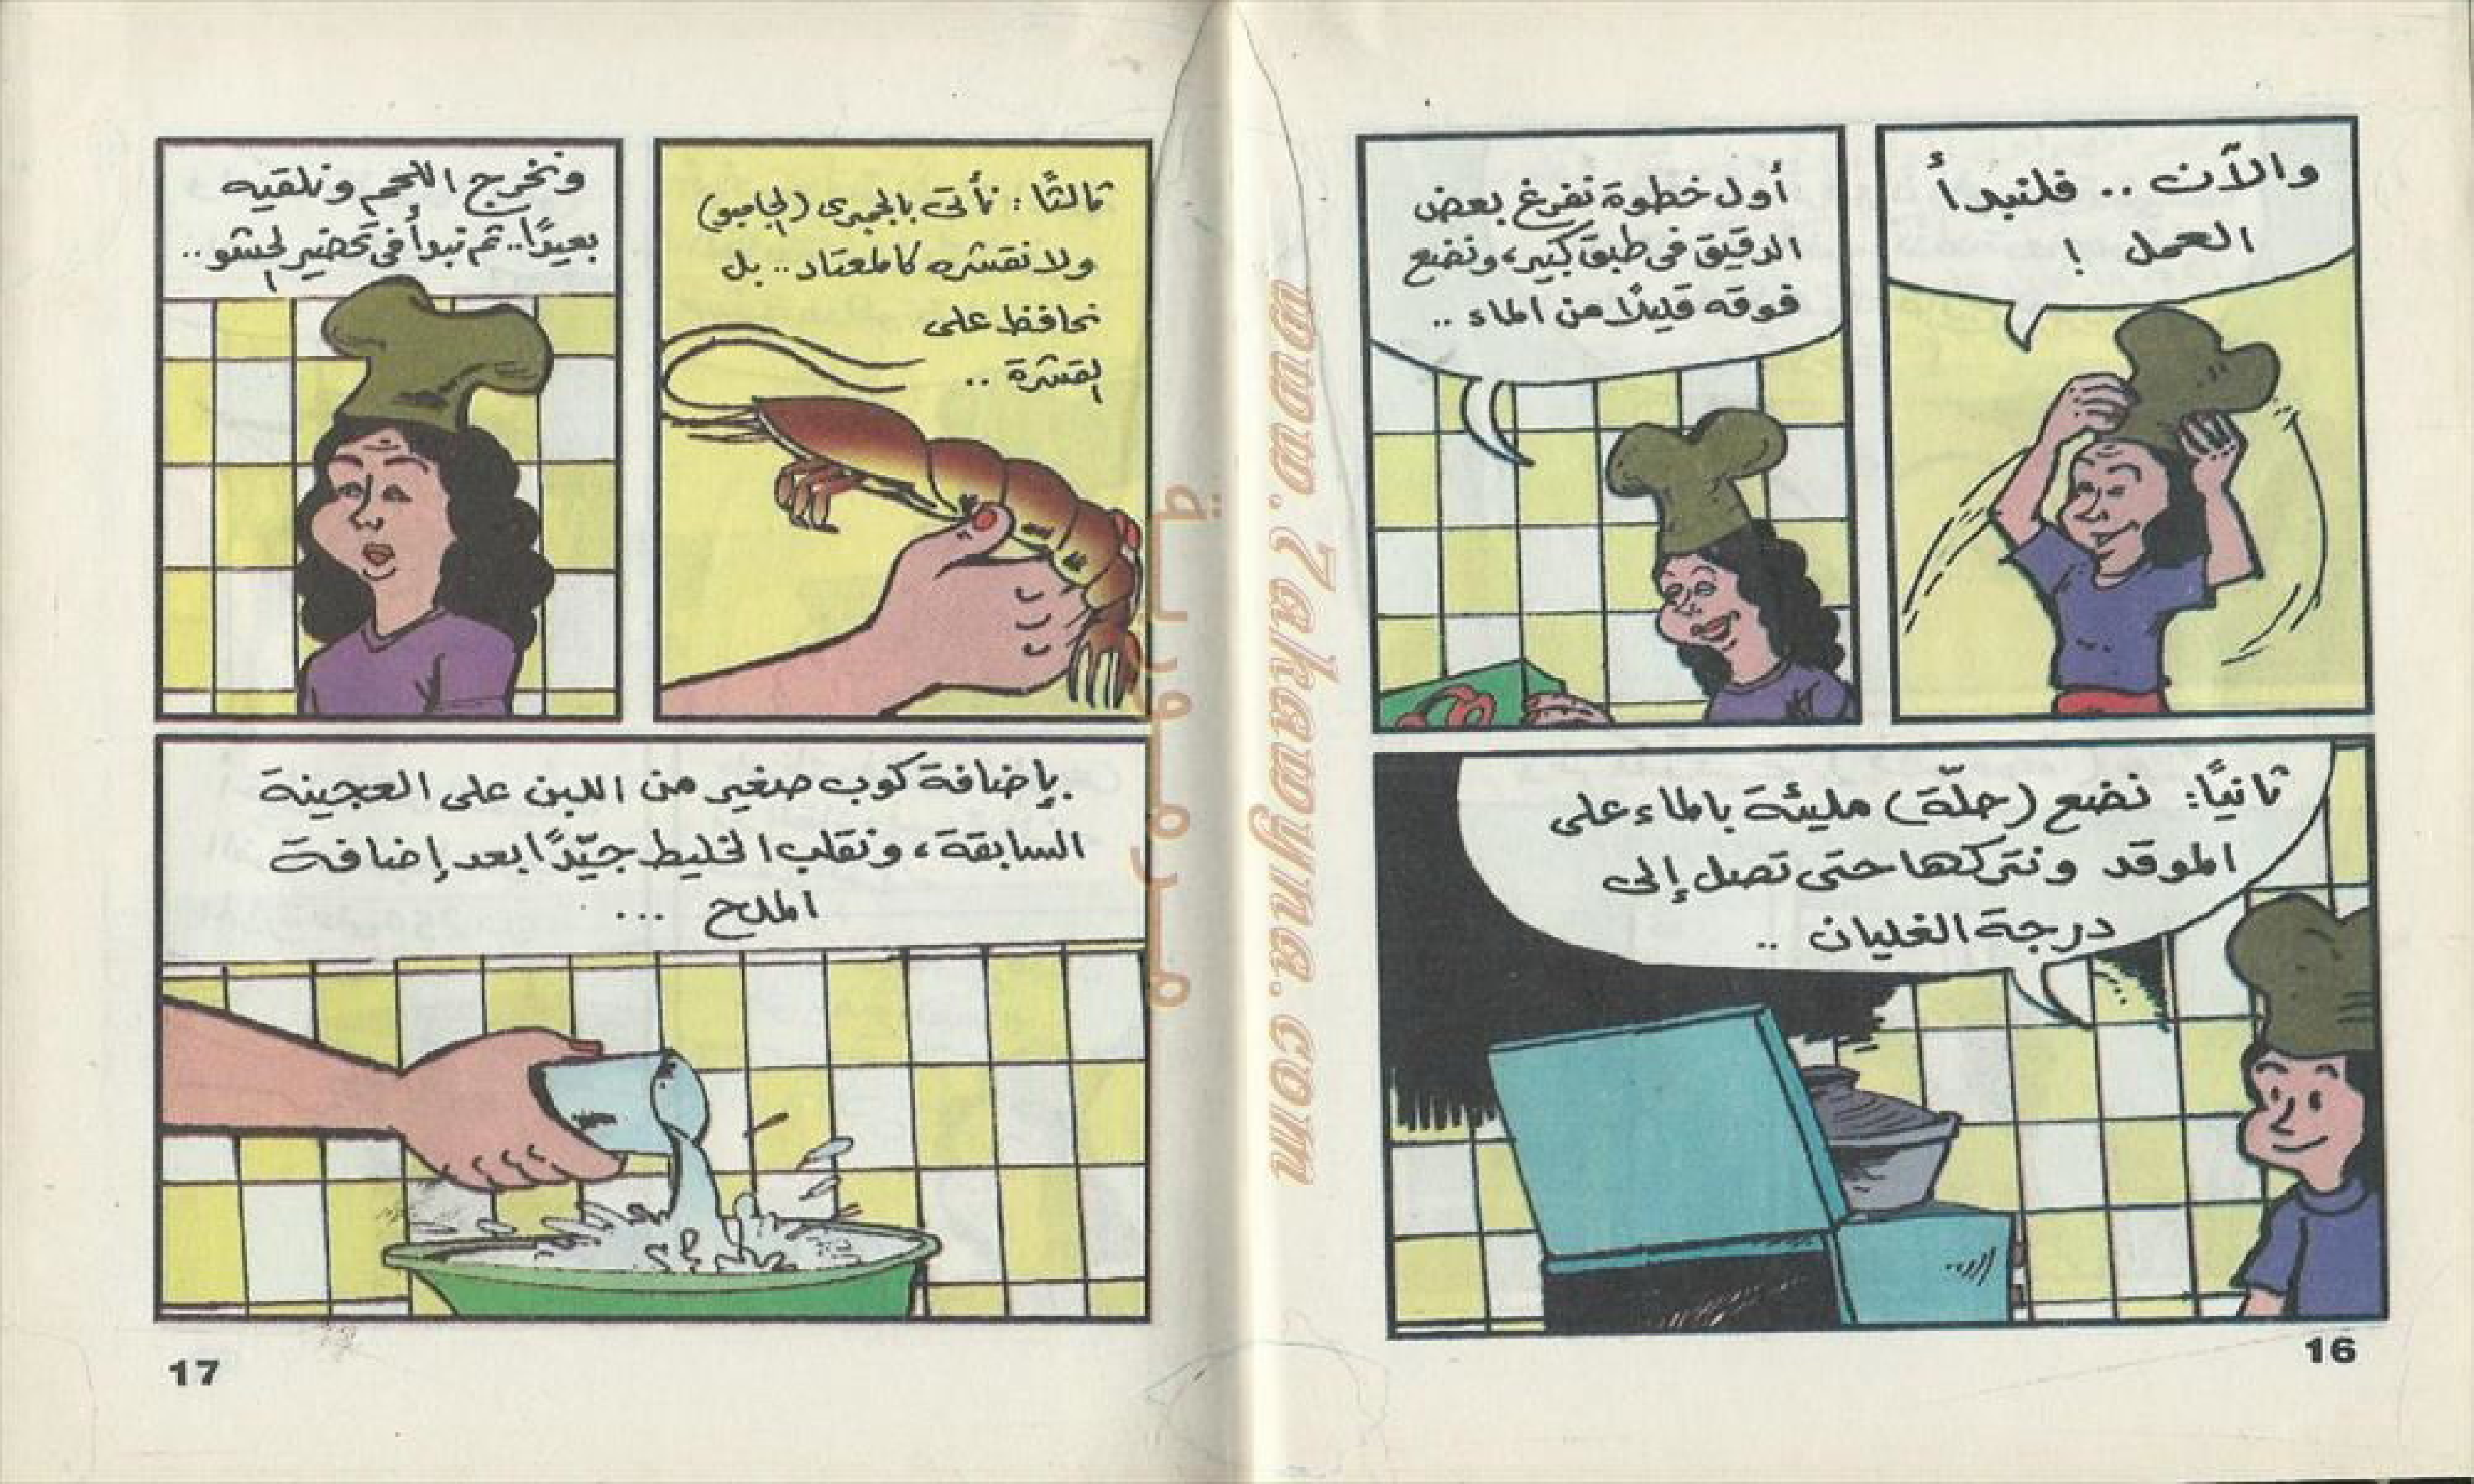 والآن .. فلنبدأ
العمل !
أول خطوة نفرغ بعض
الدقيق في طبق كبير، ونضع
فوقه قليلًا من الماء ..
ثانيًا: نضع (حلّة) مليئة بالماء على
الموقد ونتركها حتى تصل إلى
درجة الغليان ..
16
ثالثًا: نأتى بالجمبرى (الجامبو)
ولا نقشره كالمعتاد .. بل
نحافظ على
القشرة ..
ونخرج اللحم ونلقيه
بعيدًا.. ثم نبدأ فى تحضير الحشو ..
بإضافة كوب صغير من اللبن على العجينة
السابقة، ونقلب الخليط جيّدًا بعد إضافة
الملح ...
17
www.7akawyna.com
مرمورية